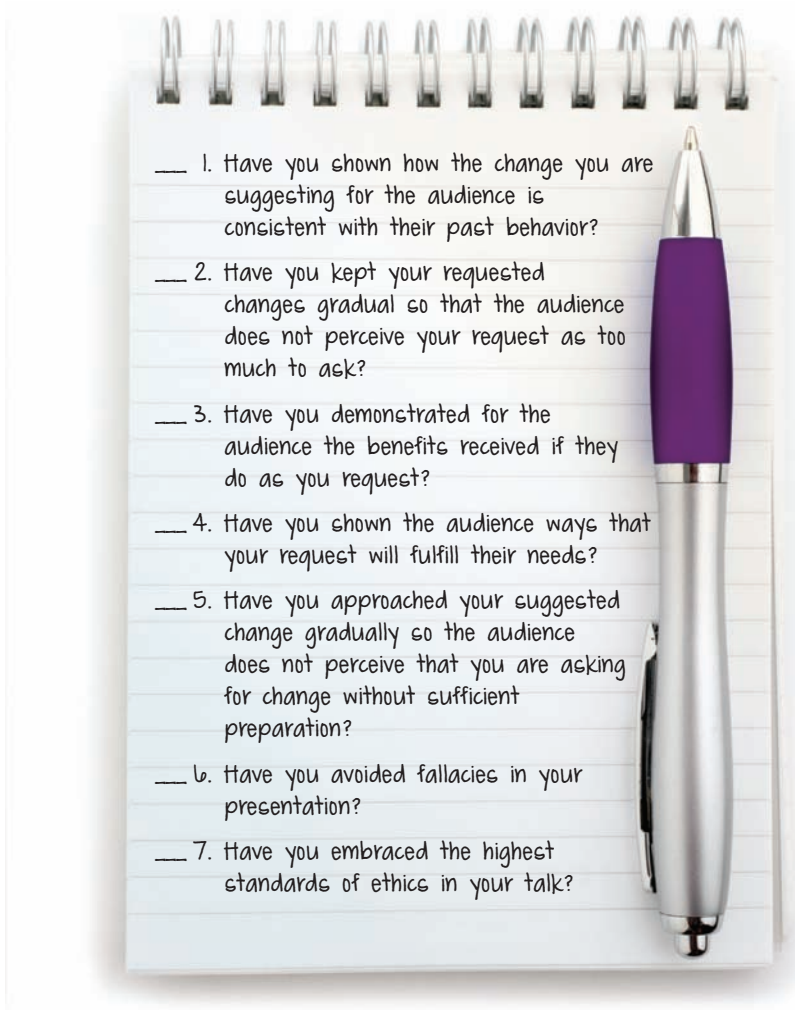 ___ 1. Have you shown how the change you are
suggesting for the audience is
consistent with their past behavior?
___ 2. Have you kept your requested
changes gradual so that the audience
does not perceive your request as too
much to ask?
___ 3. Have you demonstrated for the
audience the benefits received if they
do as you request?
___ 4. Have you shown the audience ways that
your request will fulfill their needs?
___ 5. Have you approached your suggested
change gradually so the audience
does not perceive that you are asking
for change without sufficient
preparation?
___ 6. Have you avoided fallacies in your
presentation?
___ 7. Have you embraced the highest
standards of ethics in your talk?